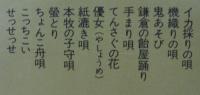 イカ採りの唄
機織りの唄
鬼あそび
鎌倉の飴屋踊り
手まり唄
てんさぐの花
優女(やしょうめ)
紙漉き唄
本牧の子守唄
螢とり
ちょんこ舟唄
こっちこい
せっせっせ